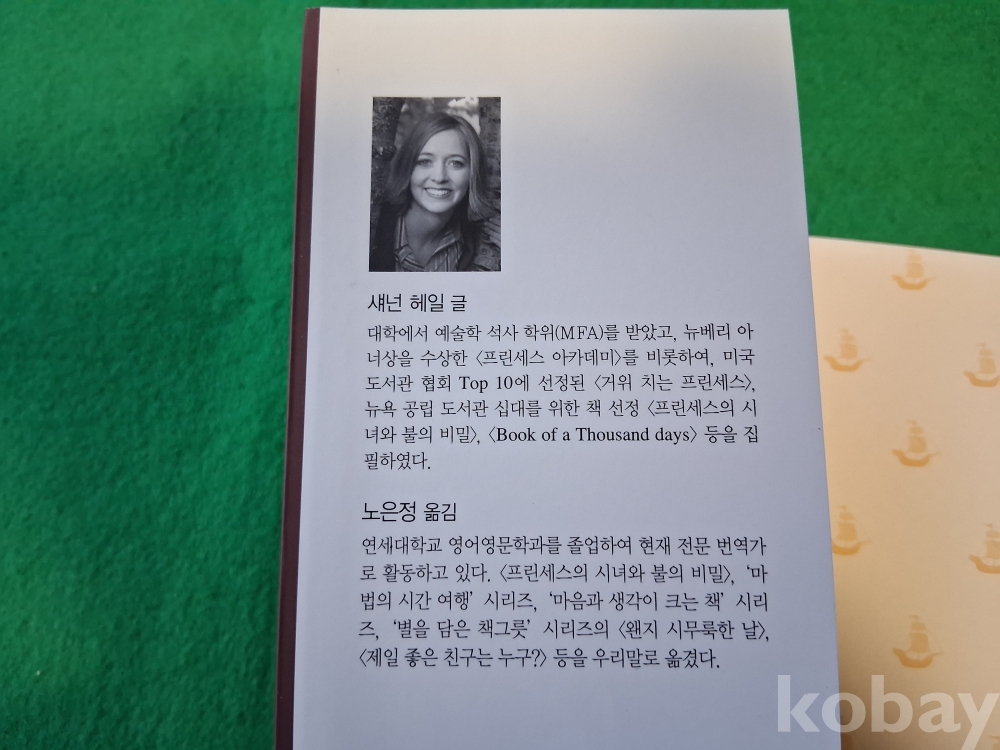 섀넌 헤일 글
대학에서 예술학 석사 학위(MFA)를 받았고, 뉴베리 아
너상을 수상한 〈프린세스 아카데미〉를 비롯하여, 미국
도서관 협회 Top 10에 선정된 〈거위 치는 프린세스〉,
뉴욕 공립 도서관 십대를 위한 책 선정 〈프린세스의 시
녀와 불의 비밀〉, 〈Book of a Thousand days〉 등을 집
필하였다.
노은정 옮김
연세대학교 영어영문학과를 졸업하여 현재 전문 번역가
로 활동하고 있다. 〈프린세스의 시녀와 불의 비밀〉, ‘마
법의 시간 여행’ 시리즈, ‘마음과 생각이 크는 책’ 시리
즈, ‘별을 담은 책그릇’ 시리즈의 〈왠지 시무룩한 날〉,
〈제일 좋은 친구는 누구?〉 등을 우리말로 옮겼다.
kobay